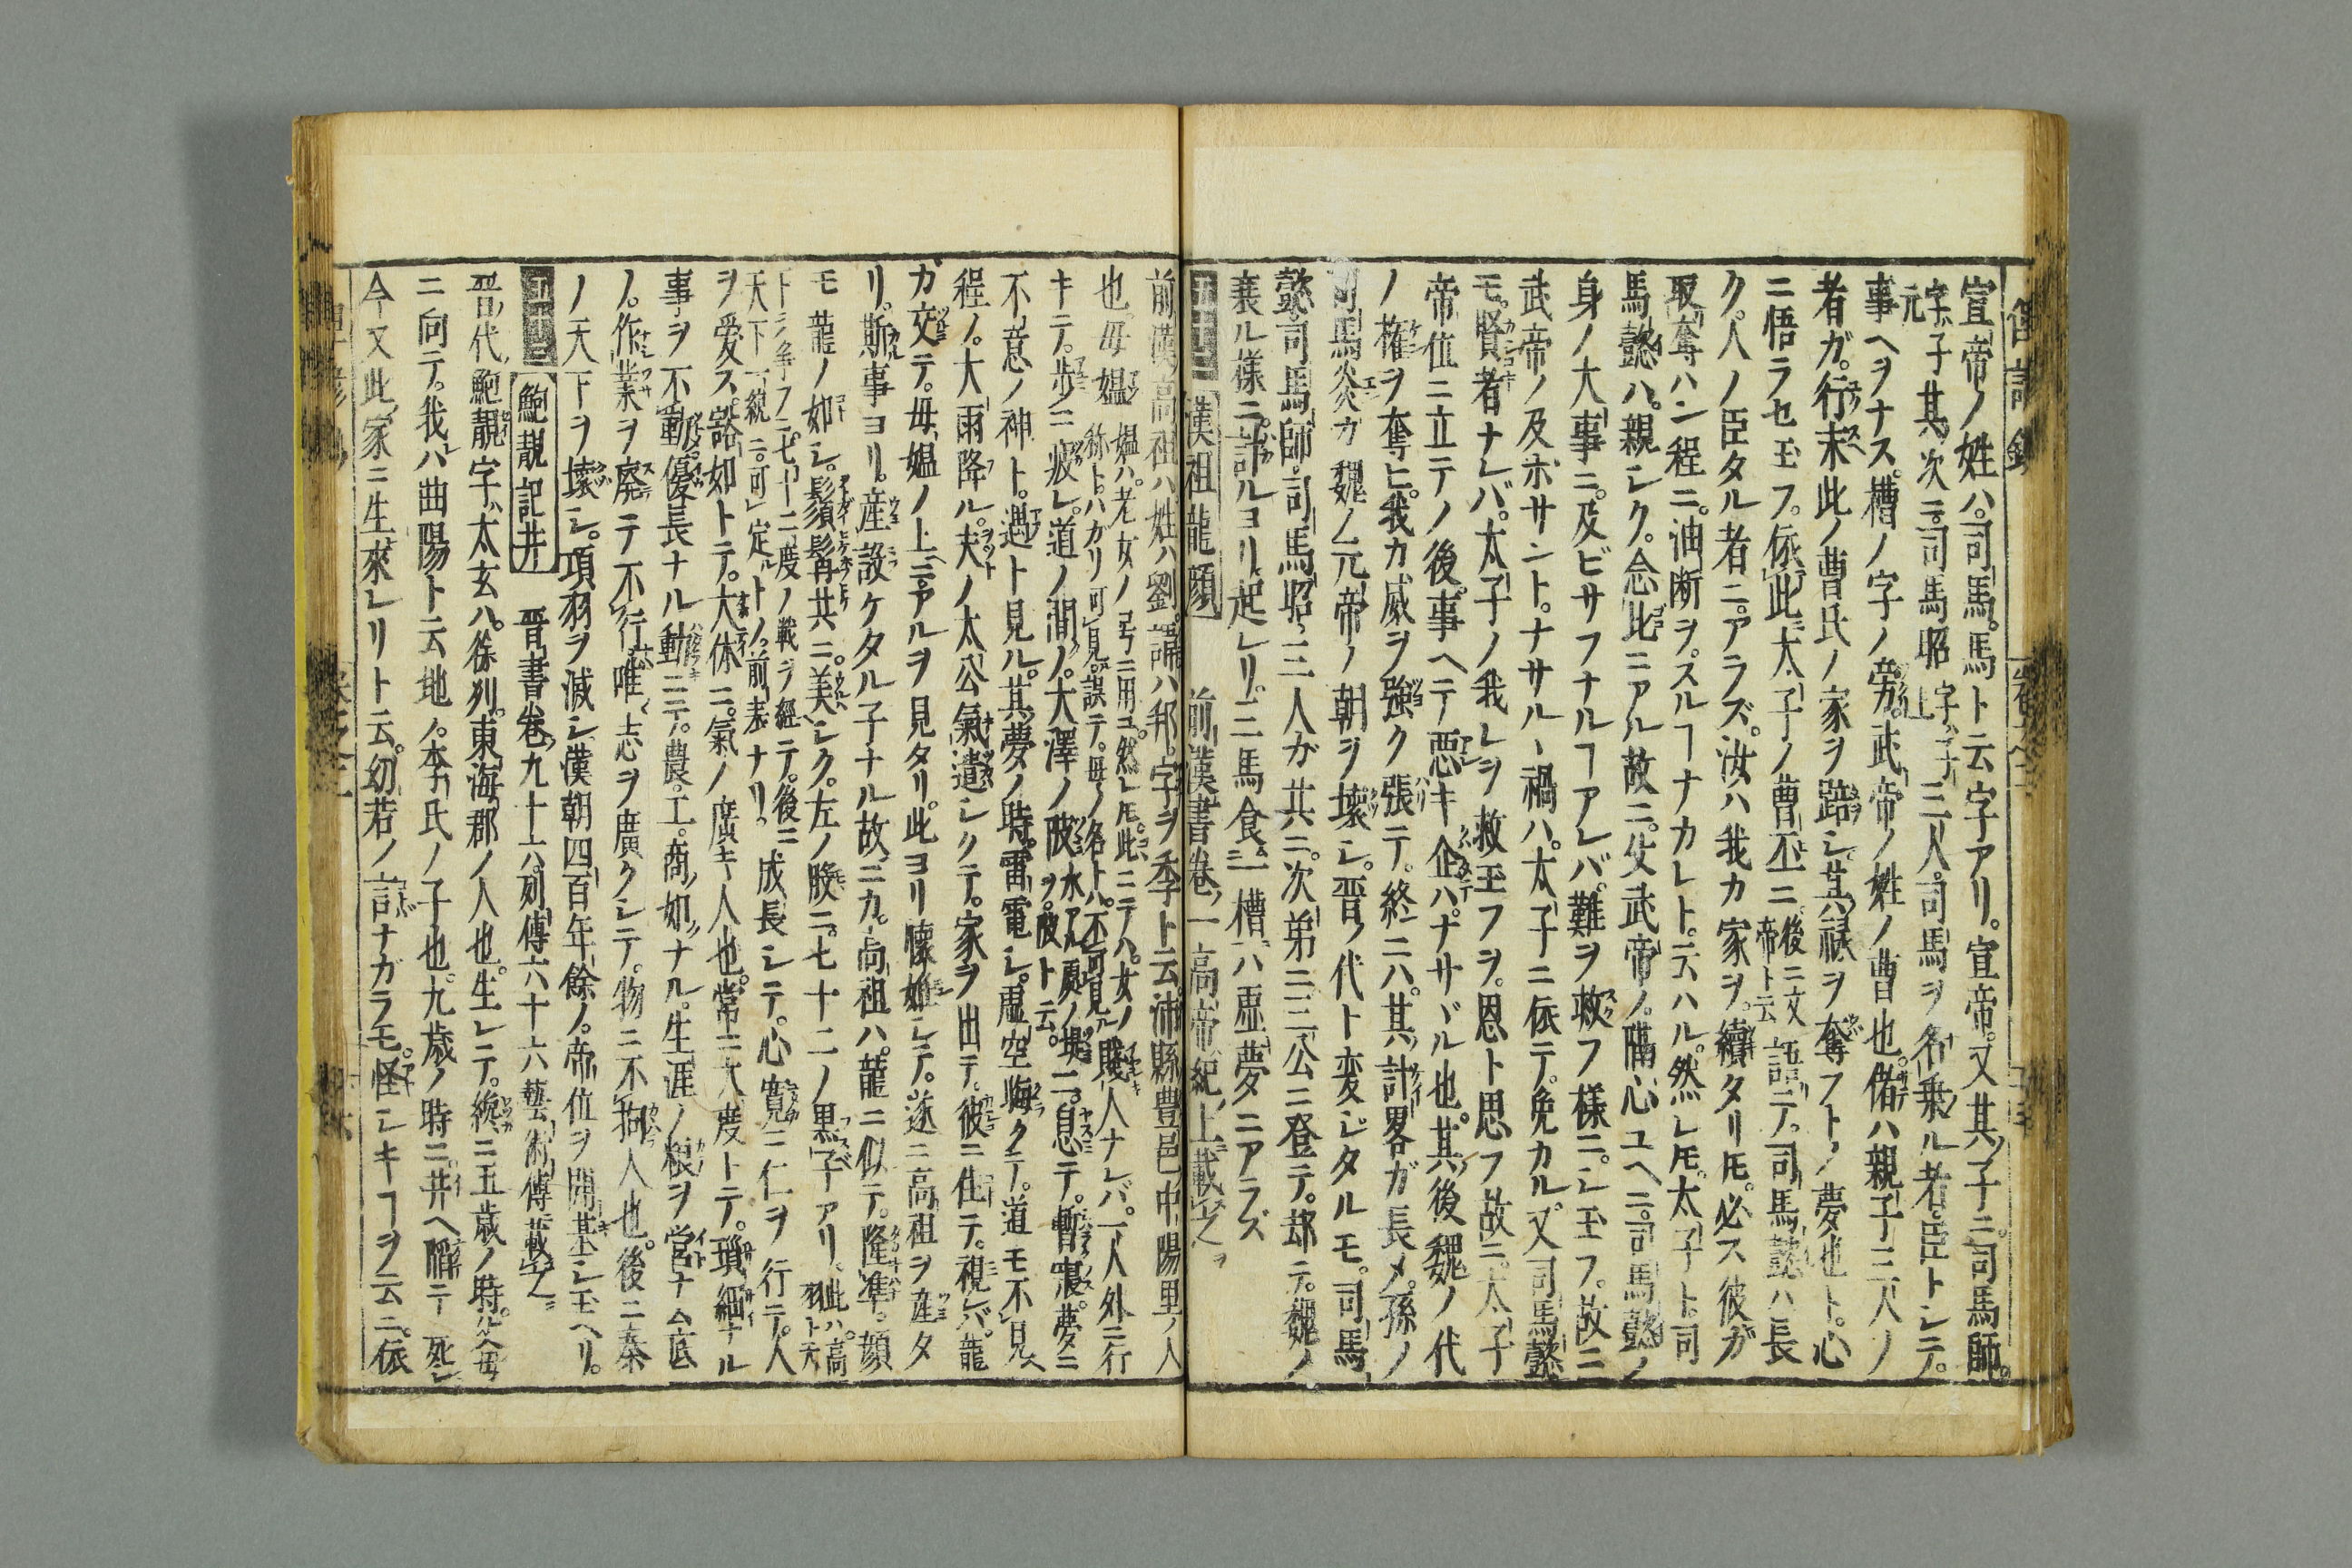 宣帝ノ姓ハ司馬馬ト云字アリ宣帝又其ノ子ニ司馬師
字子元其次ニ司馬昭字子上三人司馬ヲ名乗ル者臣トシテ
事ヘヲナス槽ノ字ノ旁武帝ノ姓ノ曹也偖ハ親子三人ノ
者ガ行末此ノ曹氏ノ家ヲ踣シ其禄ヲ奪フトノ夢也ト心
ニ悟ラセ玉フ依此太子ノ曹丕ニ後ニ文帝ト云語テ司馬懿ハ長
ク人ノ臣タル者ニアラズ汝ハ我カ家ヲ續タリ𪜈必ス彼ガ
取奪ハン程ニ油断ヲスルヿナカレト云ハル然レ𪜈太子ト司
馬懿ハ親シク念比ニアル故ニ父武帝ノ隔心ユヘニ司馬懿ノ
身ノ大事ニ及ビサフナルヿアレバ難ヲ救フ様ニシ玉フ故ニ
武帝ノ及ボサントナサル禍ハ太子ニ依テ免カル又司馬懿
モ賢者ナレバ太子ノ我レヲ救玉フヲ恩ト思フ故ニ太子
帝位ニ立テノ後事ヘテ悪キ企ハナサヾル也其後魏ノ代
ノ權ヲ奪ヒ我カ威ヲ強ク張テ終ニハ其計畧ガ長メ孫ノ
司馬炎カ魏ノ元帝ノ朝ヲ壊シ晋ノ代ト変ジタルモ司馬
懿司馬師司馬昭三人ガ共ニ次第ニ三公ニ登テ却テ魏ノ
衰ル様ニ計ルヨリ起レリ三馬食一槽ハ虚夢ニアラズ
漢祖龍顔 前漢書卷一高帝紀上載之
前漢高祖ハ姓ハ劉諱ハ邦字ヲ季ト云沛縣豊邑中陽里ノ人
也母媼媼ハ老女ノ号ニ用ユ然レ𪜈此ニテハ女ノ称トハカリ可見誤テ母ノ名トハ不可見賤人ナレバ一人外ニ行
キテ歩ニ疲レ道ノ間ノ大澤ノ陂水アル処ノ堤ヲ陂ト云ニ息テ暫寝夢ニ
不意ノ神ト遇ト見ル其夢ノ時雷電シ虚空晦クテ道モ不見
程ノ大雨降ル夫ノ太公氣遣シクテ家ヲ出テ彼ニ往テ視レバ龍
ガ交テ母媼ノ上ニアルヲ見タリ此ヨリ懐妊シテ遂ニ高祖ヲ産タ
リ斯事ヨリ産設ケタル子ナル故ニカ高祖ハ龍ニ似テ隆準顔
モ龍ノ如シ鬚髯共ニ美シク左ノ股ニ七十二ノ黒子アリ此ハ高祖ト天
下ヲ争フニ七十二度ノ戦ヲ經テ後ニ天下一統ニ可定トノ前表ナリ成長シテ心寛ニ仁ヲ行テ人
ヲ愛ス豁如トテ大体ニ氣ノ廣キ人也常ニ大度トテ瑣細ナル
事ヲ不動優長ナル動ニテ農工商如ナル生涯ノ根ヲ営ナム底
ノ作業ヲ廃テ不行唯志ヲ廣クシテ物ニ不拘人也後ニ秦
ノ天下ヲ壊シ項羽ヲ滅シ漢朝四百年餘ノ帝位ヲ開基シ玉ヘリ
鮑靚記井 晋書卷九十六列傳六十六藝術傳載之
晋代鮑靚字太玄ハ徐列東海郡ノ人也生レテ纔ニ五歳ノ時父母
ニ向テ我ハ曲陽ト云地ノ李氏ノ子也九歳ノ時ニ井ヘ隕テ死シ
今又此家ニ生來レリト云幼若ノ言ナガラモ怪シキヿヲ云ニ依